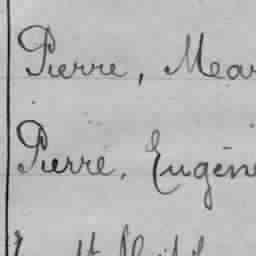 Pierre, Mear
Pierre, Eugène